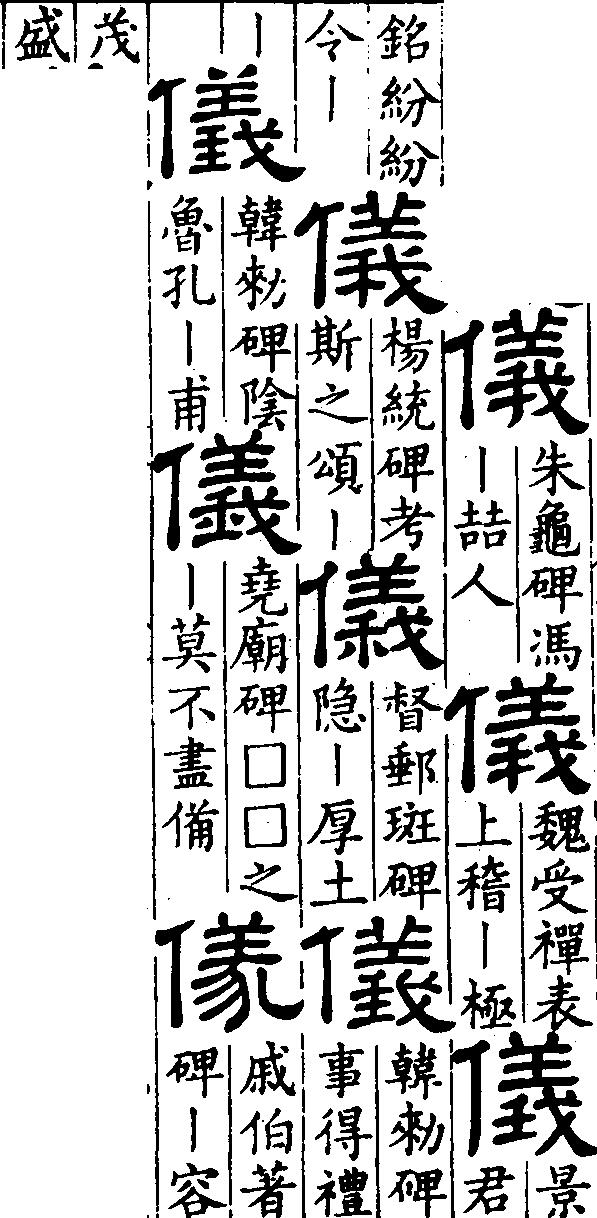 儀
朱龜碑馮
丨喆人
儀
魏受禪表
上稽丨極
儀
景
君
銘紛紛
令丨
儀
楊統碑考
斯之頌丨
儀
督郵斑碑
隐丨厚土
儀
韓勑碑
事得禮
丨
儀
韓勑碑陰
魯孔丨甫
儀
堯廟碑□□之
丨莫不盡備
儀
戚伯著
碑丨容
茂
盛